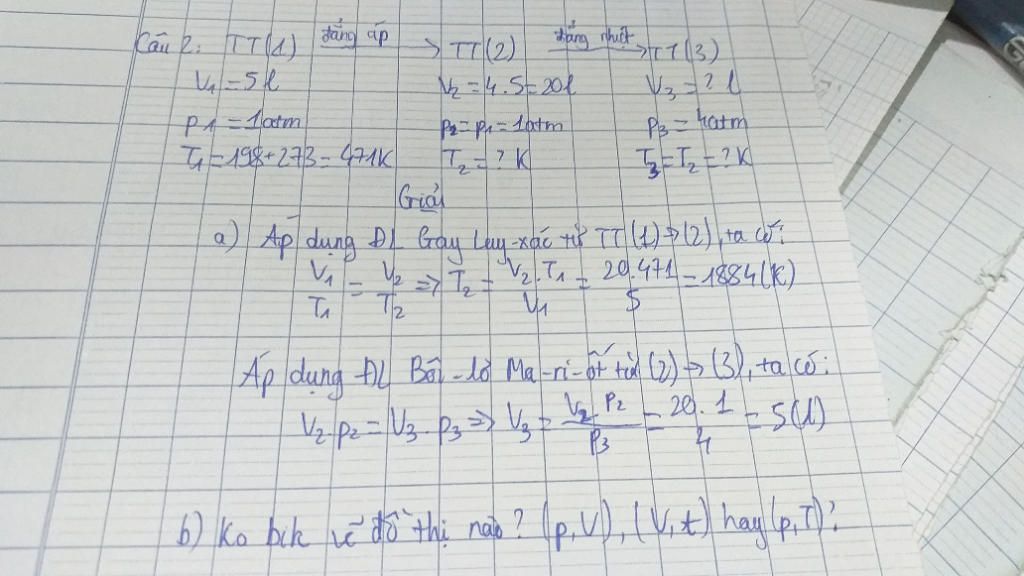 Câu 2: TT(1) đẳng áp → TT(2) đẳng nhiệt → TT(3)
V₁ = 5l V₂ = 4.5 = 20l V₃ = ? l
p₁ = 1atm p₂ = p₁ = 1atm p₃ = 4atm
T₁ = 198 + 273 = 471K T₂ = ? K T₃ = T₂ = ? K
Giải
a) Áp dụng ĐL Gay Luy-xác từ TT(1) → (2), ta có:
V₁/T₁ = V₂/T₂ => T₂ = V₂.T₁/V₁ = 20.471/5 = 1884(K)
Áp dụng ĐL Bôi-lơ Ma-ri-ốt từ (2) → (3), ta có:
V₂ p₂ = V₃ p₃ => V₃ = V₂ p₂/p₃ = 20.1/4 = 5(l)
b) Ko bik vẽ đồ thị nào? (p,V), (V,t) hay (p,T)?